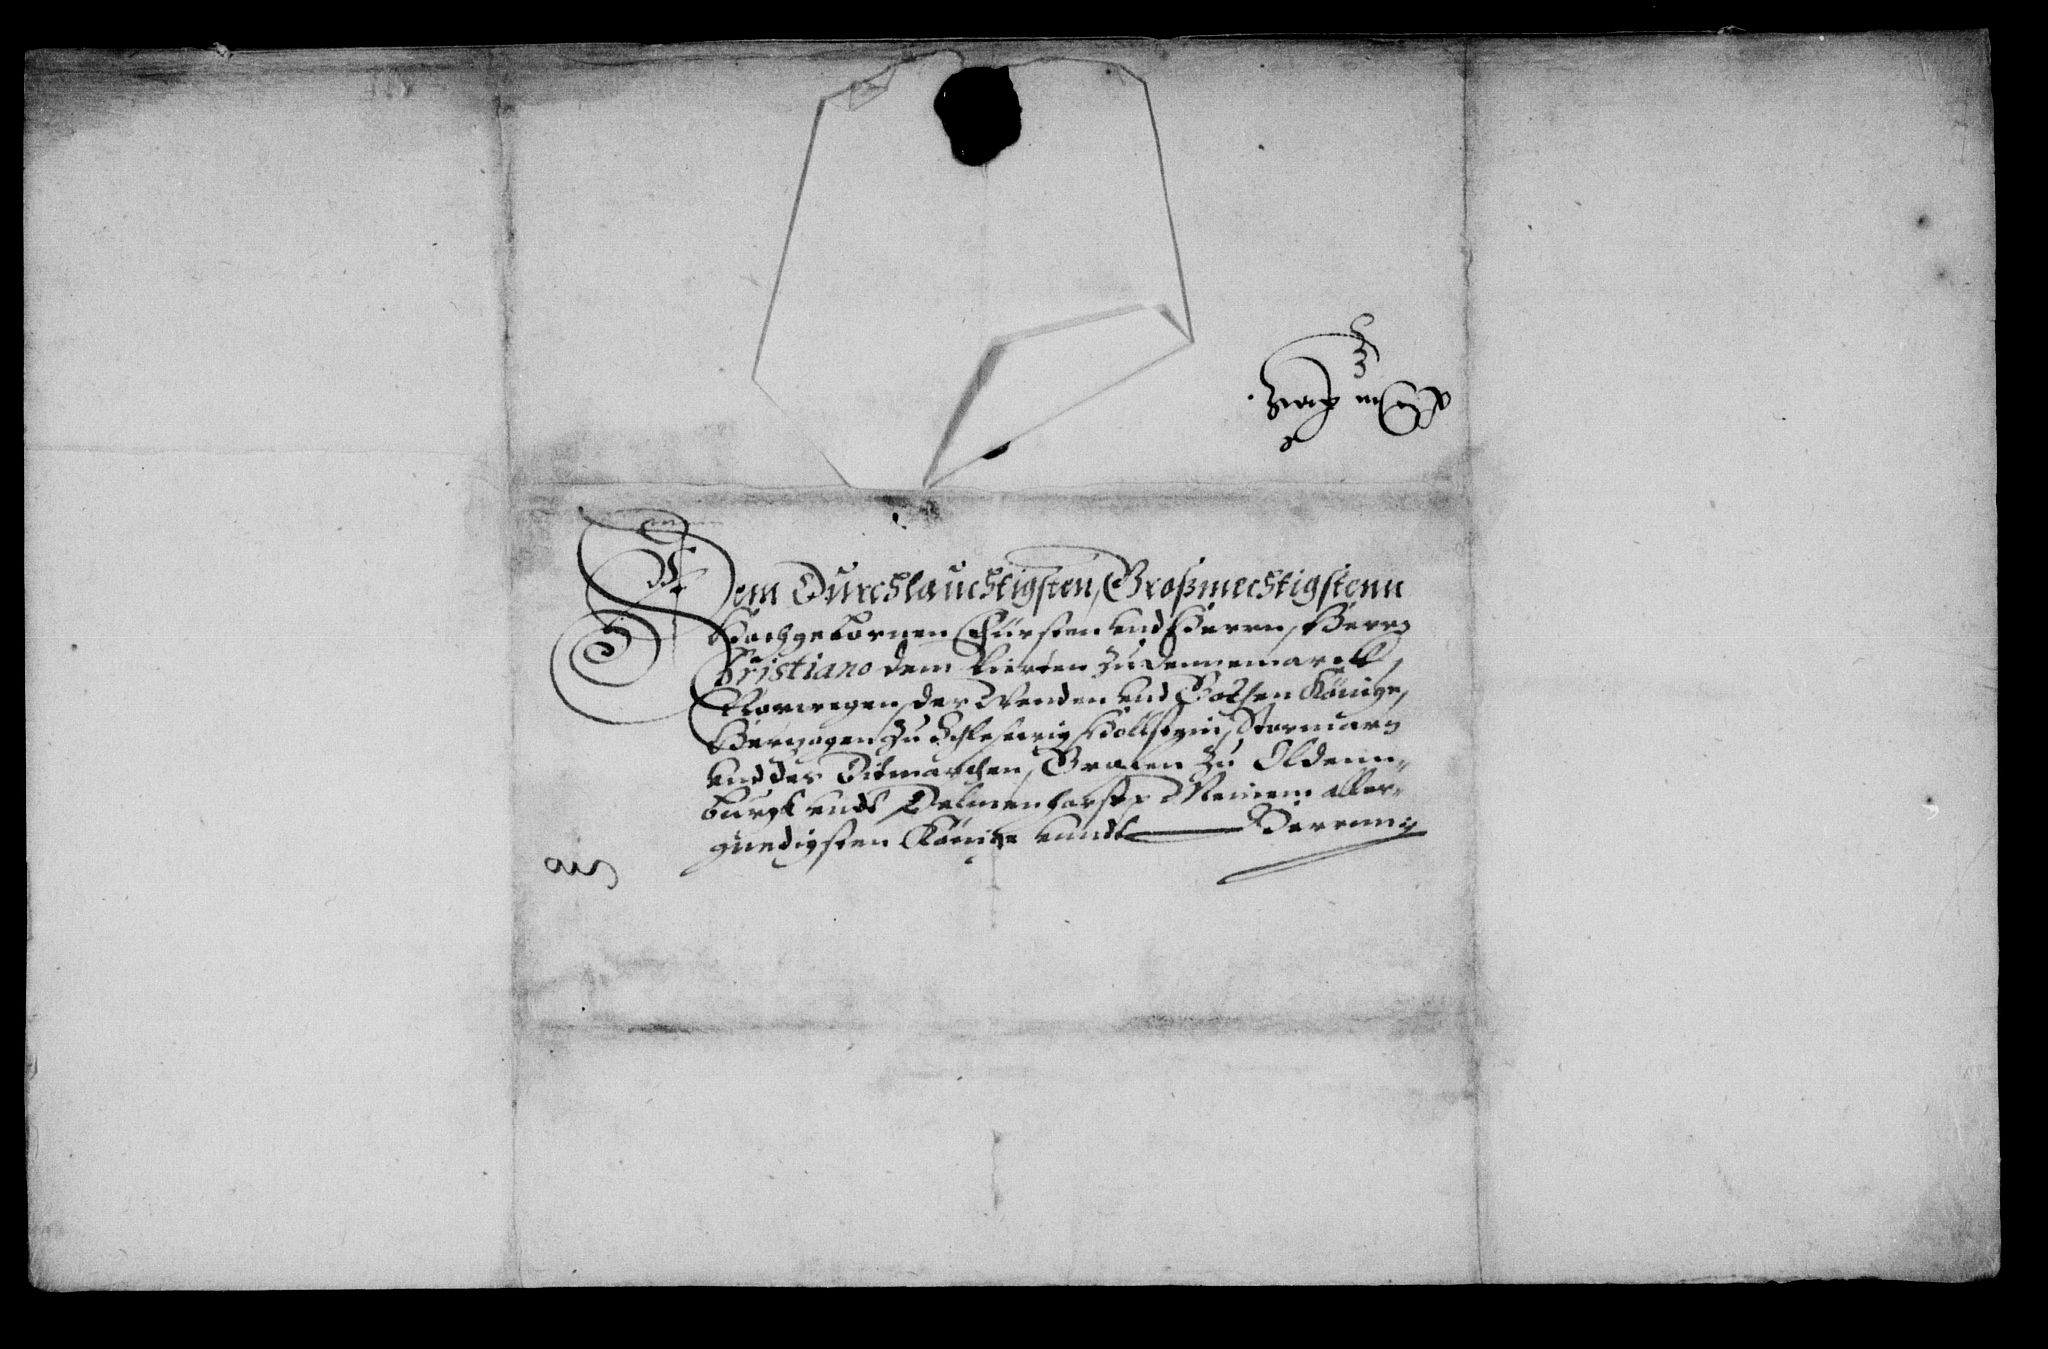 Dem Durchlauchtigsten, Großmechtigstenn
Hochgebornen Fürsten und Herrn, Herrn
Christiano dem Vierten zu Dennemarck,
Norwegen, der Wenden und Gothen Könige,
Hertzogen zu Schleswig, Hollstein, Stormarn
und der Ditmarschen, Graven zu Oldenn-
burgk undt Delmenhorst, Meinem aller-
gnedigsten Könige unndt Herrnn